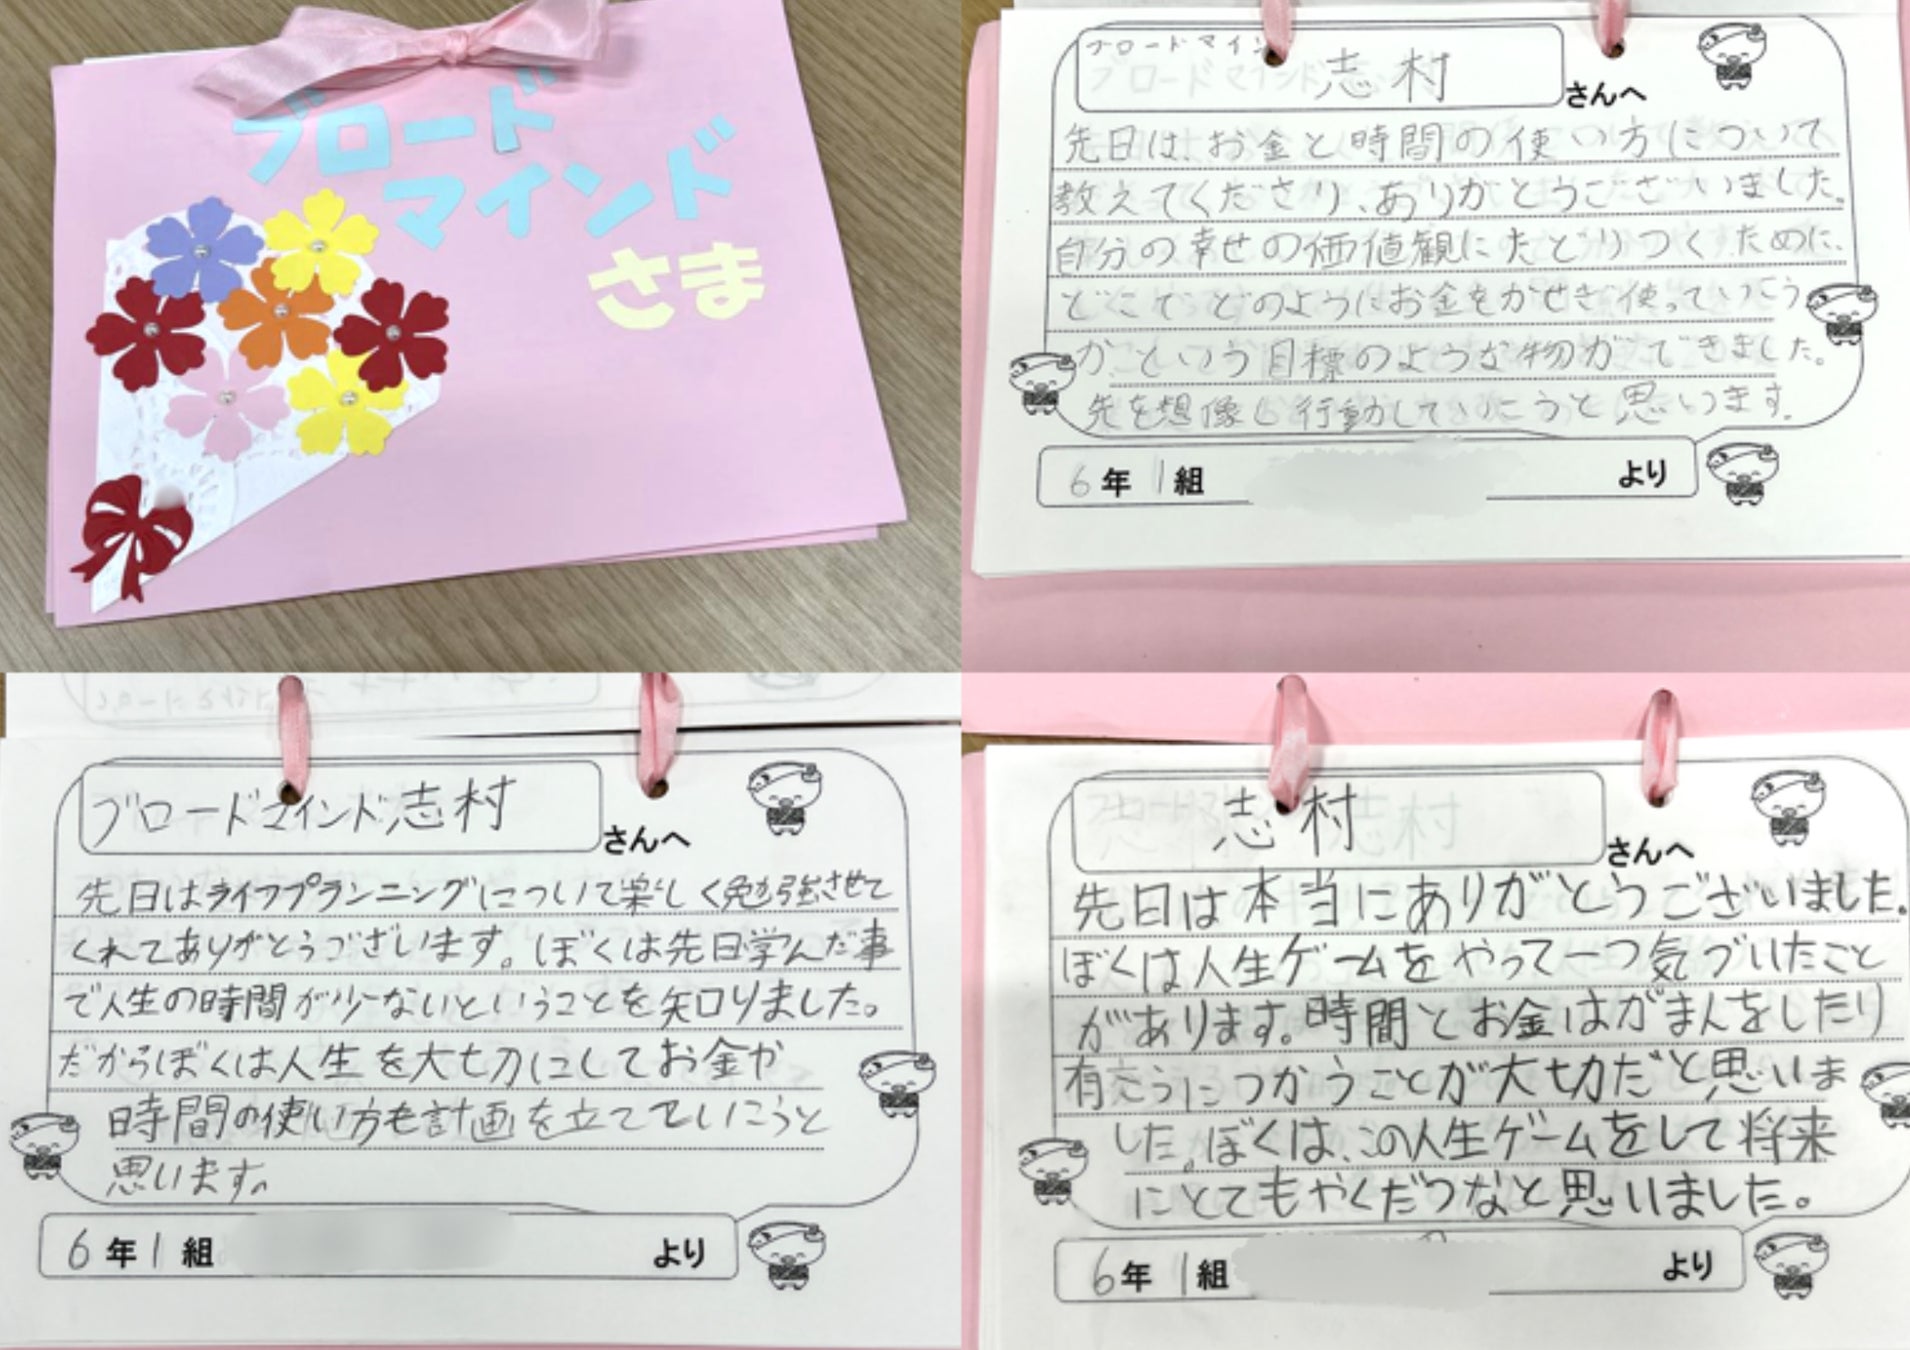 ブロード
マインド
さま
ブロードマインド 志村
さんへ
先日は、お金と時間の使い方について
教えてくださり、ありがとうございました。
自分の幸せの価値観にたどりつくために、
どこで、どのようにお金をかせぎ使っていこう
か、という目標のような物ができました。
先を想像し行動していこうと思います。
6年1組
より
ブロードマインド志村
さんへ
先日はライフプランニングについて楽しく勉強させて
くれてありがとうございます。ぼくは先日学んだ事
で人生の時間が少ないということを知りました。
だからぼくは人生を大切にしてお金や
時間の使い方も計画を立てていこうと
思います。
6年1組
より
志村
さんへ
先日は本当にありがとうございました。
ぼくは人生ゲームをやって一つ気づいたこと
があります。時間とお金はがまんをしたり
有こうにつかうことが大切だと思いま
した。ぼくは、この人生ゲームをして将来
にとてもやくだつなと思いました。
6年1組
より